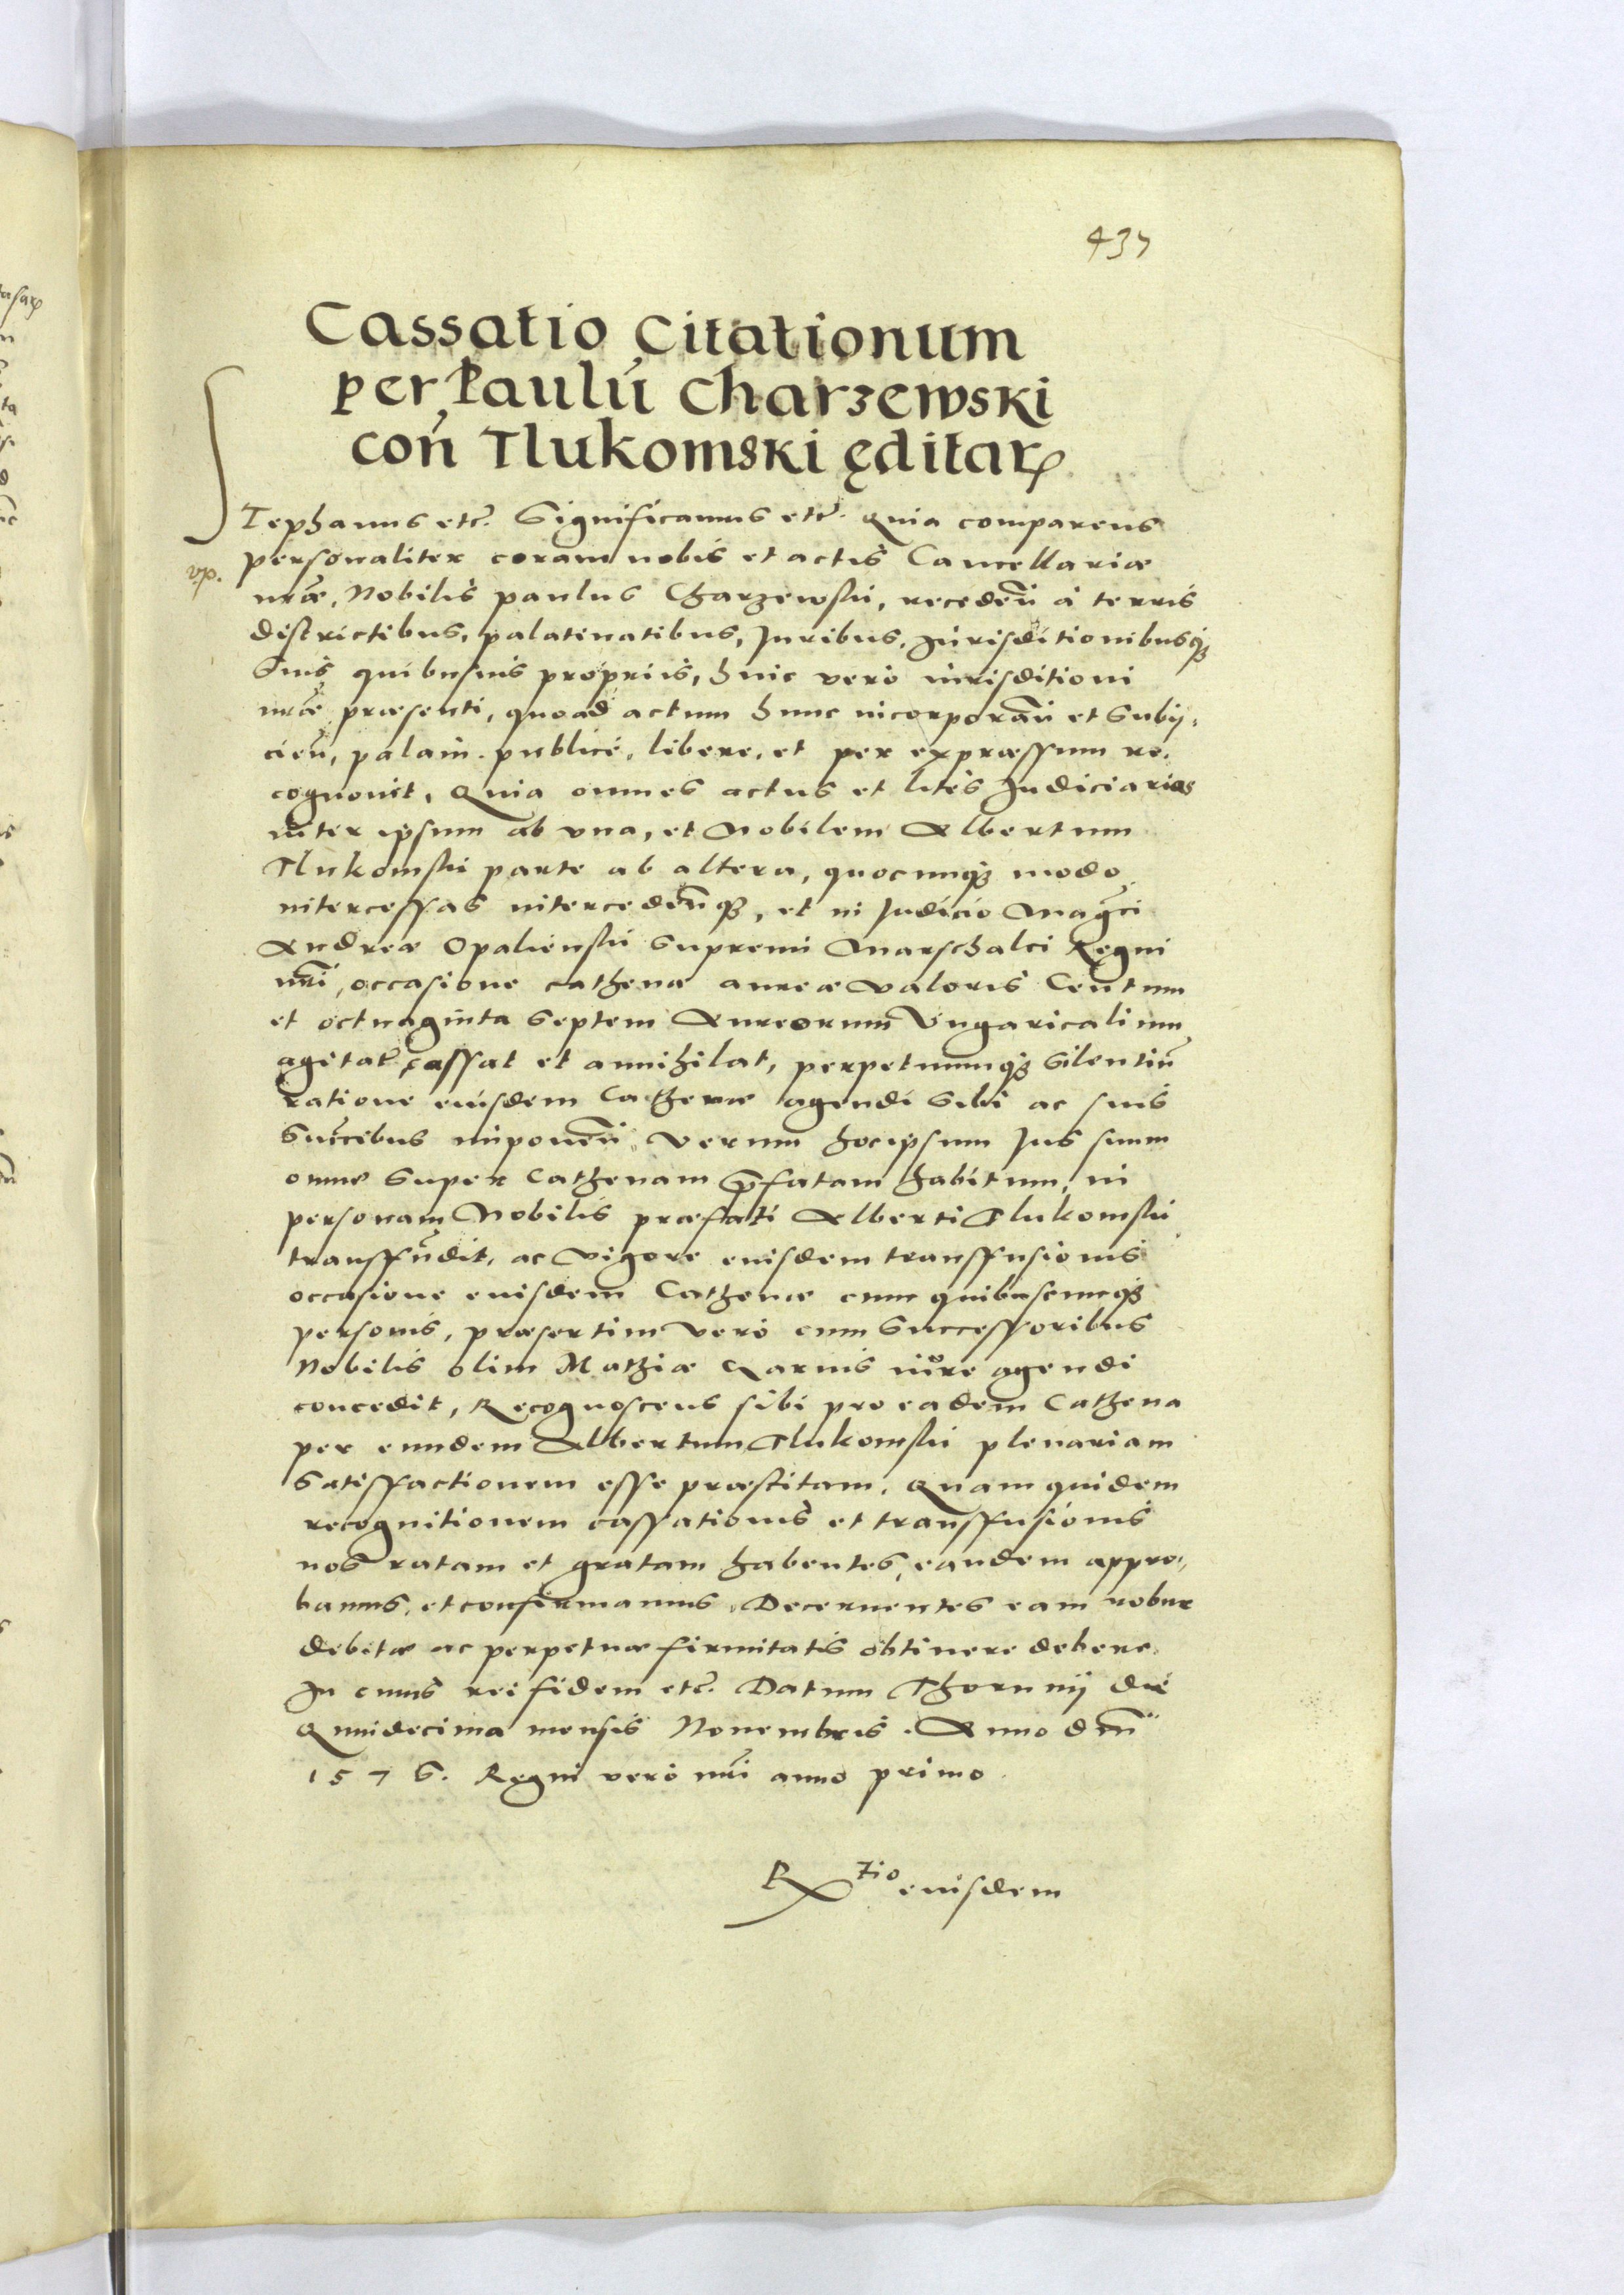 437
Cassatio Citationum
per Paulū Charzewski
con̄ Tlukomski ęditaꝝ
Stephanus etc. Significamus etc. Quia comparens
personaliter coram nobis et actis Cancellariæ
vp.
nr̄æ, Nobilis paulus Charzewski, receden̄ à terris
districtibus, palatinatibus, Juribus, Jurisditionibusqꝫ
Suis quibusuis proprijs, huic verò iurisditioni
nr̄æ præsenti, quoad actum hunc incorporan̄ et Subij,
cien̄, palam. publicè, libere, et per expræssum re,
cognouit, Quia omnes actus et lites Judiciarias
inter ipsum ab vna, et Nobilem Albertum
Tlukomski parte ab altera, quocunqꝫ modo
intercessas intercedenqꝫ, et in Judicio Maḡci
Andreæ Opalienski Supremi Marschalci Regni
nr̄i, occasione cathenæ aureæ valoris Centum
et octuaginta Septem Aureorum Vngaricalium
agitat̄ cassat et annihilat, perpetuumqꝫ Silentiū
ratione eiusdem Cathenæ agendi Sibi ac suis
Succ̄ibus imponen̄ verum hocipsum Jus suum
omne Super Cathenam p̄fatam habitum, in
personam Nobilis præfati Alberti Tlukomski
transffūdit, ac vigore eiusdem transffusionis
occasione eiusdem Cathenæ cum quibuscunqꝫ
personis, præsertim verò cum Successoribus
Nobilis olim Mathiæ Żarnis iure agendi
concedit, Recognoscens sibi pro eadem Cathena
per eundem Albertum Tlukomski plenariam
Satisffactionem esse præstitam. Quam quidem
recognitionem cassationis et transffusionis
nos ratam et gratam habentes, eandem appro,,
bamus, et confirmamus, Decernentes eam robur
debitæ ac perpetuæ firmitatis obtinere debere.
In cuius rei fidem etc. Datum Thorunij die
Quindecima mensis Nouembris. Anno dn̄i
1576. Regni verò nr̄i anno primo.
Rtio eiusdem